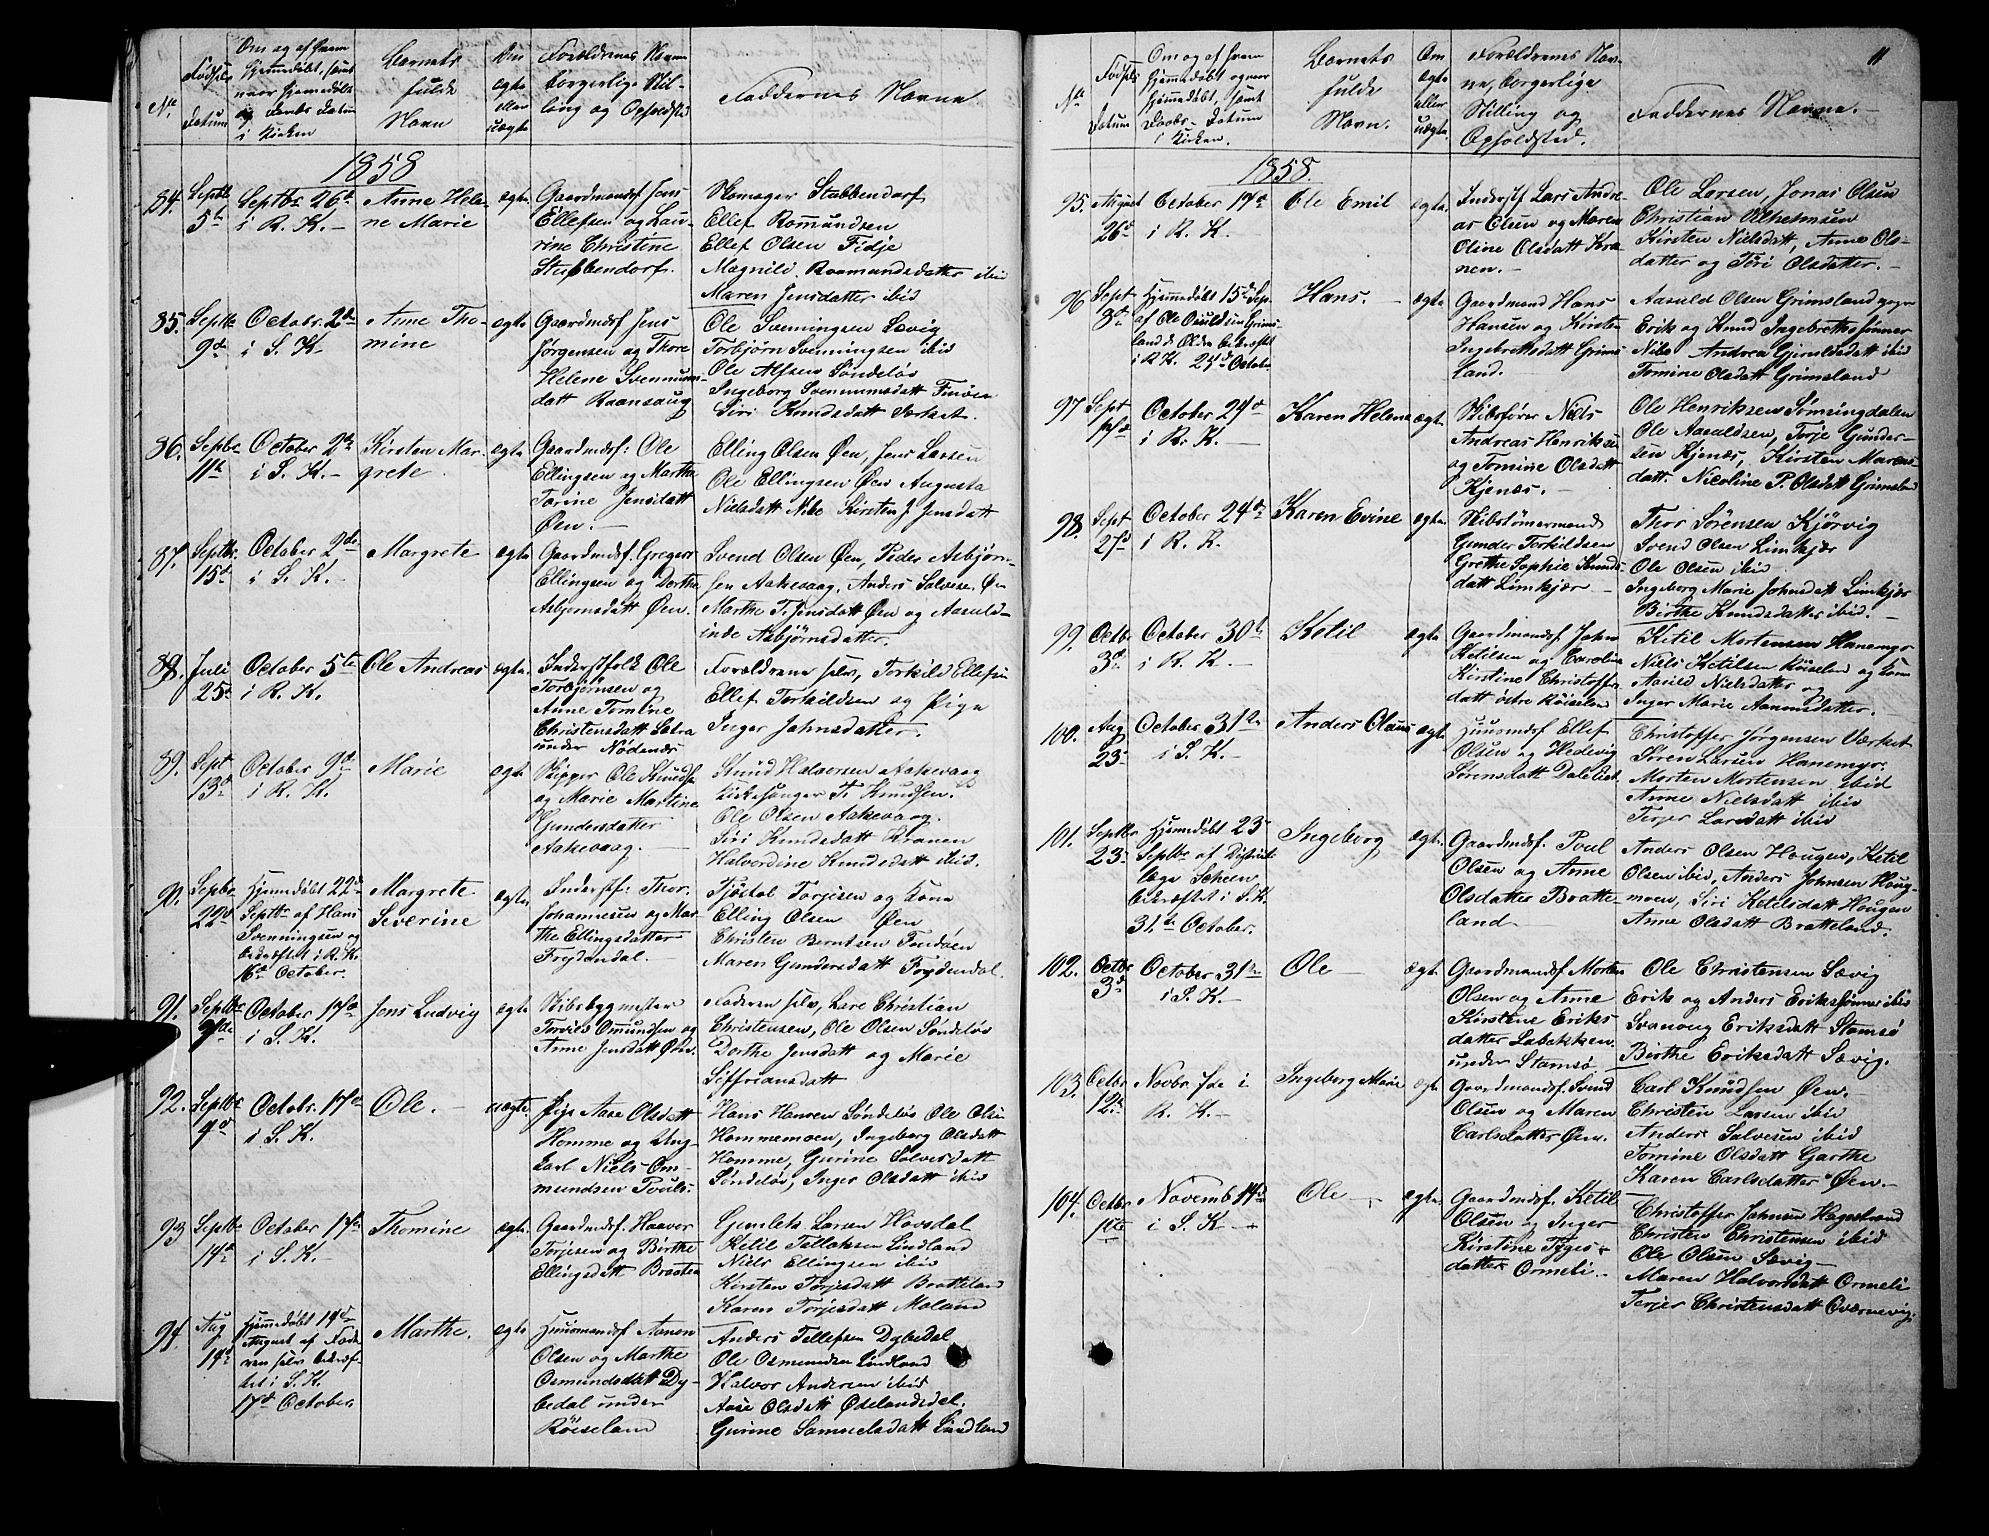 11
No.
Fødsels
Datum
Om og af hvem
hjemmedøbt, samt
naar hjemmedøbt
og Daabs Datum
i Kirken
Barnets
fulde
Navn
Om
ægte
eller
uægte
Forældrenes Navne
borgerlige Stil-
ling og Opholdsted
Faddernes Navne
1858
84. Septbr 5te
Septbr. 26de
i R. K. –
Anne Hele-
ne Marie
ægte
Gaardmandsf. Jens
Ellefsen og Lau-
rine Christine
Stubbendorf.
Skomager Stubbendorf
Ellef Romundsen
Ellef Olsen Fidje
Magnild Roamundsdatter ibid
Maren Jensdatter ibid
85. Septbr 9de
Octobr. 2den
i S. K.
Anne Tho-
mine
ægte
Gaardmdsf. Jens
Jørgensen og Thore
Helene Svennums-
datt Raansaug
Ole Svenningsen Sævig
Torbjørn Svenningsen ibid
Ole Alfsen Søndeløs
Ingeborg Svennumsdatt Finøen
Siri Knudsdatt Værket.
86. Septbr 11te
October 2den
i S. K. –
Kirsten Mar-
grete
ægte
Gaardmdsf: Ole
Ellingsen og Marthe
Torine Jensdatt
Øen. –
Elling Olsen Øen, Jens Larsen
Ole Ellingsen Øen Augusta
Nielsdatt Nibe Kirsten J. Jensdatt
87. Septbr. 15de
October 2den
i S. K. –
Margrete
ægte
Gaardmdsf. Gregers
Ellingsen og Dorthe
Asbjørnsdatt Øen.
Svend Olsen Øen, Peder Asbjørn-
sen Aakevaag, Anders Salvese. Øen
Marthe T. Jensdatt Øen og Aasuld-
inde Asbjørnsdatter.
88. Juli 25de
October 5te
i R. K.
Ole Andreas
ægte
Inderstfolk Ole
Torbjørnsen og
Anne Tomine
Christensdatt Satra
under Nødenæs
Forældrene selv, Torkild Ellefsen
Ellef Torkildsen og Pige
Inger Johnsdatter.
89. Sept 13de
October 9de
i R. K.
Marie
ægte
Skipper Ole Knudsen
og Marie Martine
Gundersdatter
Aakevaag.
Knud Halvorsen Aakevaag
Kirkesanger T. Knudsen.
Ole Olsen Aakevaag.
Siri Knudsdatt Kranen
Halvordine Knudsdatt ibid.
90. Septbr. 22de
Hjemmedøbt 22de
Septbr. af Hans
Svenningsen og
bekræftet i R. K.
16de October.
Margrete
Severine
ægte
Inderstf: Thor
Johannesen og Mar-
the Ellingsdatter
Frydendal. –
Tjøstol Torjesen og Kone
Elling Olsen Øen
Christen Berntsen Fondøen
Maren Gundersdatt Frydendal.
91. Septbr.
October 17de
i S. K.
Jens Ludvig
ægte
Skibsbygmester
Torvils Omundsen og
Anne Jensdatt Øen.
Faderen selv, Lars Christian
Christensen, Ole Olsen Søndeløs
Dorthe Jensdatt og Marie
Siffriansdatt
92. Septbr 4de
Octobr. 17de
i S. K.
Ole.
uægte
Pige Aase Olsdatt
Homme og Ung-
karl Niels Om-
mundsen Pouls-
Hans Hansen Søndeløs Ole Olsen
Hommemoen, Ingeborg Olsdatt
Homme, Gurine Salvesdatt
Søndeløs, Inger Olsdatt ibid
93 Septbr 14de
October 17de
i S. K. –
Thomine
ægte
Gaardmdsf. Haavor
Torjesen og Birthe
Ellingsdatt Braaten
Gunlek Larsen Hovdal
Ketil Tellaksen Lindland
Niels Ellingsen ibid
Kirsten Torjesdatt Bratteland
Karen Torjesdatt Moland
94. Aug 14de
Hjemmedøbt 14de
August af Fade-
ren selv bekræf-
tet i S. K.
17de October.
Marthe.
ægte
Huusmandsf. Aanon
Olsen og Marthe
Osmundsdatt Dy-
bedal under
Røiseland
Anders Tellefsen Dybedal
Ole Osmundsen Lindland
Halvor Andersen ibid
Aase Olsdatt Ødelandsdal.
Gurine Samuelsdatt Lindland
No
Fødsels
Datum
Om og af hvem
hjemmedøbt og naar
hjemmedøbt, samt
Daabs- Datum
i Kirken.
Barnets
fulde
Navn.
Om
ægte
eller
uægte.
Forældrenes Nav-
ne, borgerlige
Stilling og
Opholdsted.
Faddernes Navne. –
1858.
95. August 26de
October 17de
i R. K.
Ole Emil
ægte
Inderstf Lars Andre-
as Olsen og Maren
Oline Olsdatt Kra-
nen. –
Ole Larsen, Jonas Olsen
Christian Vilhelmsen
Kirsten Nielsdatt, Anne Ols-
datter og Siri Olsdatter. –
96 Septr 3de
Hjemmedøbt 15de Sep.
af Ole Osuldsen Grims-
land d. Olden bekræftet
i R. K. 24de October
Hans. –
ægte
Gaardmand Hans
Hansen og Kirsten
Ingebretsdatt Grims-
land.
Aasuld Olsen Grimsland yngre
Erik og Knud Ingebretssønner
Nibe Andrea Gjeruldsdatt ibid
Tomine Olsdatt Grimsland
97 Septr
October 24de
i R. K.
Karen Helene
ægte
Skibsfører Niels
Andreas Henriksen
og Tomine Olsdatt
Kjenæs. –
Ole Henriksen Sømsingdalen
Ole Aasuldsen, Torje Gunder-
sen Kjenæs, Kirsten Marens-
datt. Nicoline P. Olsdatt Grimsland
98. Septr 27de
October 24de
i R. K.
Karen Evine
ægte
Skibstømermand
Gunder Torkildsen
Grethe Sophie Knuds-
datt Limkjær –
Thor Sørensen Kjørvig
Svend Olsen Limkjær
Ole Olsen ibid
Ingeborg Marie Johnsdatt Limkjær
Birthe Knudsdatter ibid. –
99. Octbr 3de
October 30te
i R. K. –
Ketil
ægte
Gaardmandsf. John
Ketilsen og Caroline
Kirstine Christoffer-
datt østre Røiselan
Ketil Mortensen Hanemyr
Niels Ketilsen Røiselan og Kone
Aasild Nielsdatter og
Inger Marie Aanonsdatter. –
100. Aug 23de
October 31te
i S. K. –
Anders Olaus
ægte
Huusmdsf Ellef
Olsen og Hedevig
Sørensdatt Dalebet.
Christoffer Jørgensen Værket
Søren Larsen Hanemyr.
Morten Mortensen ibid
Anne Nielsdatt ibid
Terjer Larsdatt ibid
101. Septbr 23de
Hjemmedøbt 23de
Septbr. af Distrikts-
læge Scheen
bekræftet i S. K.
31te October.
Ingeborg
ægte
Gaardmdsf. Poul
Olsen og Anne
Olsdatter Bratte-
land –
Anders Olsen Hougen, Ketil
Olsen ibid, Anders Johnsen Houg-
moen, Siri Ketilsdatt Hougen
Anne Olsdatt Bratteland.
102. Octbr 3de
October 31te
i S. K. –
Ole –
ægte
Gaardmandsf Morten
Olsen og Anne
Kirstine Eriks
datter Labekken
under Stamsø
Ole Christensen Sævig
Erik og Anders Erikssønner ibid
Svanaug Eriksdatt Stamsø
Birthe Eriksdatt Sævig.
103. Octbr 12te
Novbr. 7de i
R. K. –
Ingeborg Marie
ægte
Gaardmandsf. Svend
Olsen og Maren
Carlsdatter Øen.
Carl Knudsen Øen. –
Christen Larsen ibid
Anders Salvesen ibid
Tomine Olsdatt Garthe
Karen Carlsdatter Øen. –
104. Octbr 1ste
Novemb 14de
i S. K –
Ole –
ægte
Gaardmdsf. Ketil
Olsen og Inger
Kirstine Tyges-
datter Ormeli. –
Christoffer Johnsen Hagestrand
Christen Christensen ibid
Ole Olsen Sævig –
Maren Halvorsdatt Ormeli
Terjer Christensdatt Qværnevig.